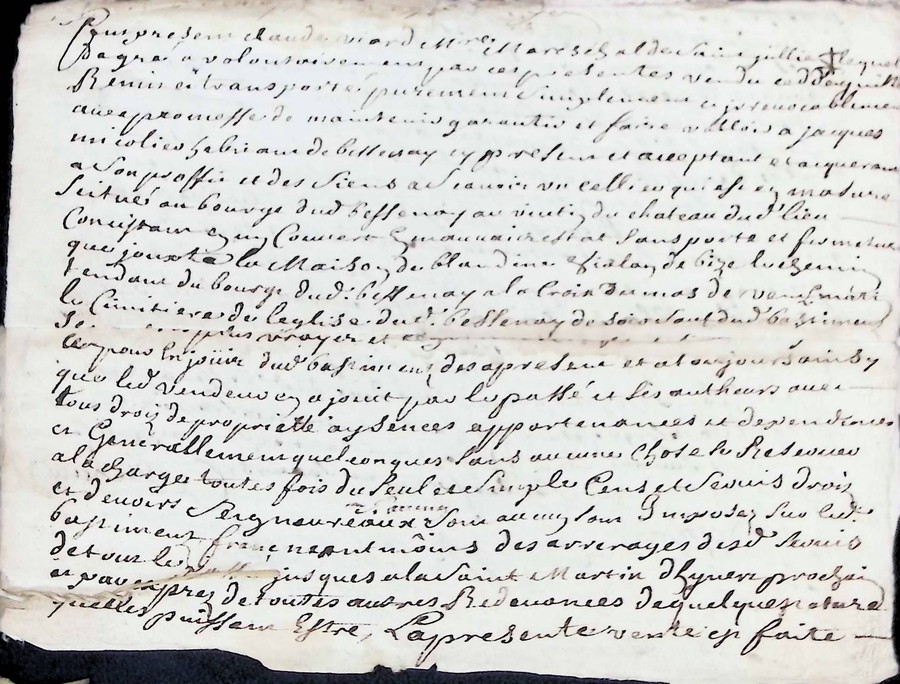 Fut present claude Mre Mareschal de Saint jullien lequel
Dagré a volontairement par ces presentes vendu ced quitté
Remis et transporté purement simplement et irrevocablement
avec promesse de maintenir garantir et faire valloir a jacques
nicolieu de bessenay cy present et acceptant et acquerant
a son proffit et des siens a scavoir un cellier qui est en masure
scitué au bourg dud bessenay au du chateau dud lieu
Consistant en un Couvert En mauvais estat sans porte et fermeture
que jouxte la Maison de blandine de bize le chemin
tendant du bourg dud bessenay a la Croix Dumas de vent matin
le Cimitiere de leglise dud bessenay de soir Sauf dud bastiment
plus vrayes et
pour En joüir dud bastiment des apresent et a toujours ainsy
que led vendeur en a jouit par le passé et ses autheurs avec
tous droits de proprietté aysences appartenances et dependences
et Generallement quelconques sans aucune Chose se Reserver
a la charge toutes fois du seul et simple Cens et servis droits
et devoirs Seigneureaux Sy aucuns sont Imposez sur led
bastiment franc neantmoins des arrerages desd servis
de tout le passé jusques a la Saint Martin dhyvert prochain
et de toutes autres Redevances de quelque nature
quelles puissent Estre, La presente vente est faite